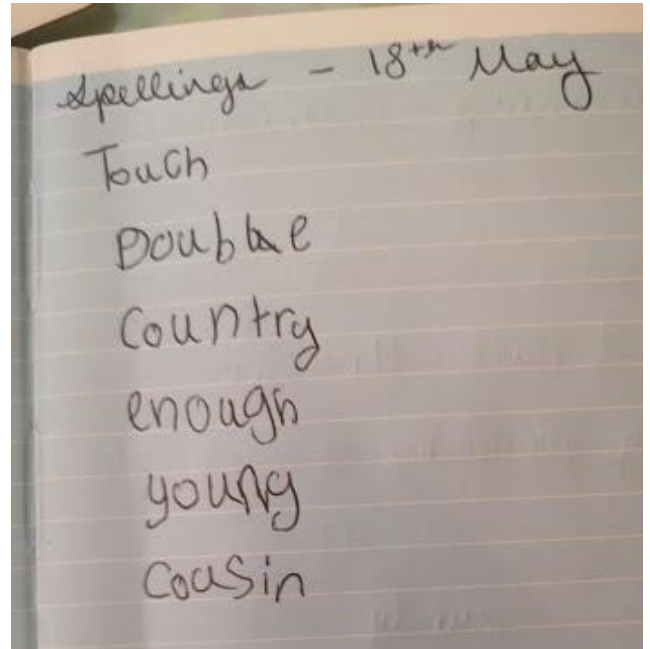 Spellings - 18th May
Touch
Double
Country
enough
young
Cousin